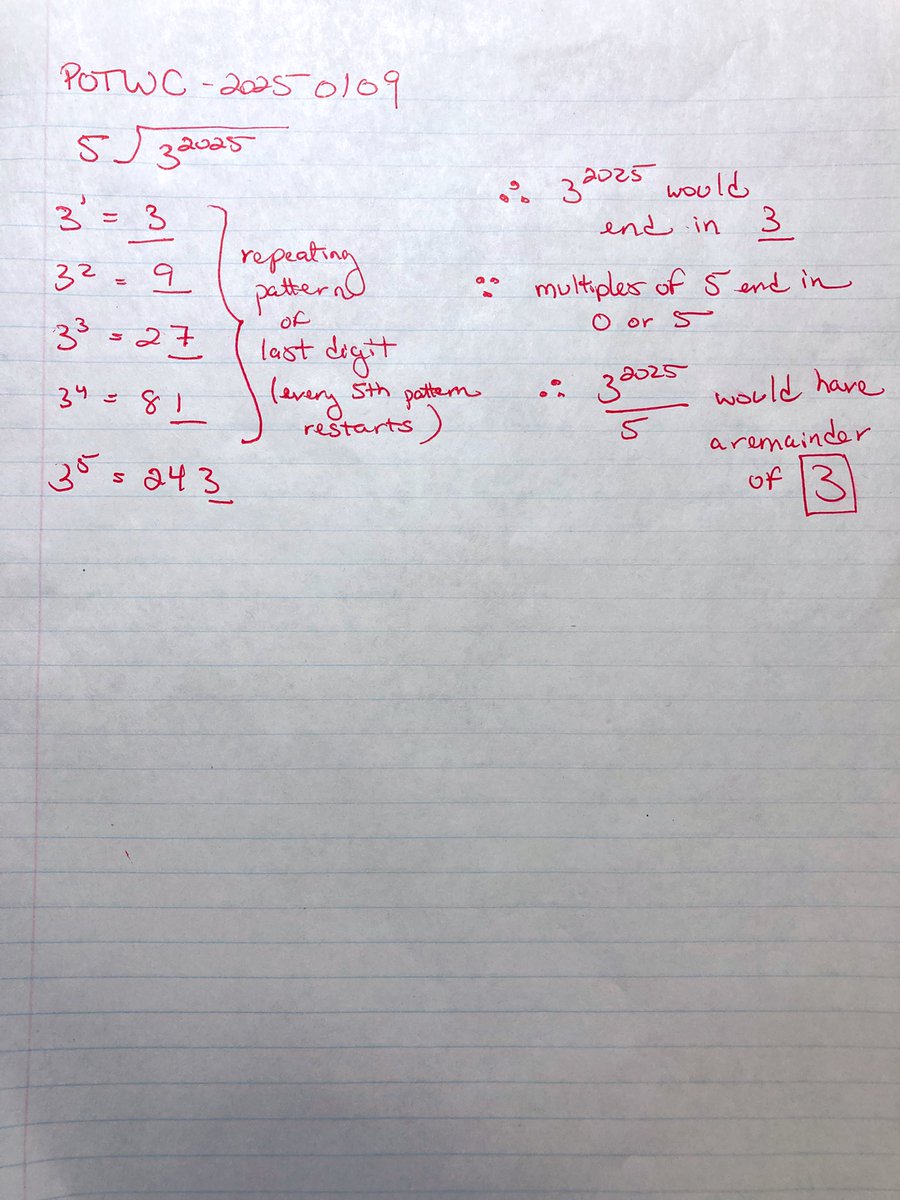 POTWC - 2025 0109
5 √3^2025
3^1 = 3
3^2 = 9
3^3 = 27
3^4 = 81
3^5 = 243
repeating
pattern
of
last digit
(every 5th pattern
restarts)
∴ 3^2025 would
end in 3
∵ multiples of 5 end in
0 or 5
∴ 3^2025/5 would have
a remainder
of 3